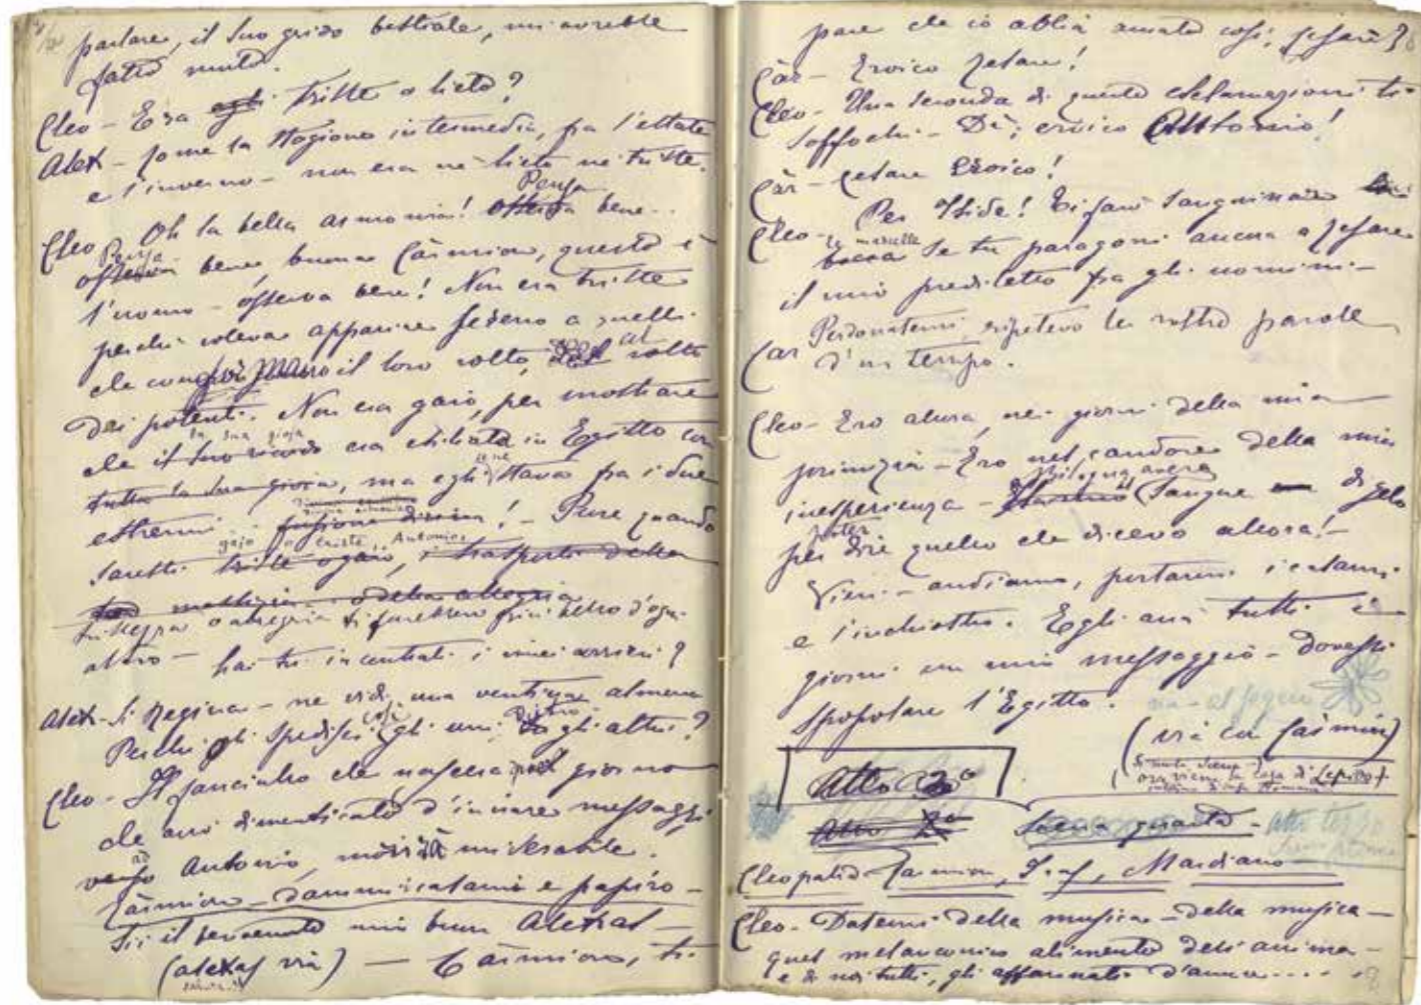 parlare, il suo grido bestiale, mi avrebbe
fatto muto.
Cleo - Era egli triste o lieto?
Alex - Come la stagione intermedia, fra l'estate
e l'inverno - non era nè lieto nè triste.
Pensa
Cleo Oh la bella armonia! osserva bene...
Pensa
osserva bene buona Càrmion, questo è
l'uomo - osserva bene! Non era triste
perchè voleva apparire sereno a quelli
che il loro volto, al volto
dei potenti. Non era gaio, per mostrare
la sua gioja
che il suo ricordo era in Egitto con
tutta la sua gioia, ma egli stava fra i due
estremi fusione divina! - Pure quando
gajo o triste, Antonio
saresti triste o gaio, i trasporti della
mestizia o della allegria
tristezza o allegria ti farebbero più bello d'ogni
altro - hai tu incontrati i miei corrieri?
Alex - Si Regina - ne vidi una ventina almeno
Perchè gli spedisci così gli uni dietro gli altri?
Cleo - Il fanciullo che nascerà nel giorno
che avrò dimenticato d'inviare messaggi
ad
verso Antonio, morirà miserabile.
Càrmion - dammi calamo e papiro -
Sii il benvenuto mio buon Alexas -
(alexas via) - Càrmion, ti
pare che io abbia amato così, Cesare?
Càr - Eroico Cesare!
Cleo - Una seconda di queste esclamazioni ti
soffochi - Di', eroico Antonio!
Càr - Cesare Eroico!
Cleo - Per Iside! Ti farò sanguinare
le mascelle
bocca se tu paragoni ancora a Cesare
il mio prediletto fra gli uomini -
Car Perdonatemi, ripetevo le vostre parole
d'un tempo.
Cleo - Ero allora, nei giorni della mia
primizia - Ero nel candore della mia
bisogna avere
inesperienza - sangue di gelo
poter
per dire quello che dicevo allora! -
Vieni - andiamo, portami i calami
e l'inchiostro. Egli avrà tutti i
giorni un mio messaggio - dovessi
spopolare l'Egitto.
(via con Càrmion)
(Si muta scena -
ora viene la casa di Lepido)
Atto 3º
Atto 2º Scena quarta - Atto terzo
Cleopatra Carmion, Iras, Mardiano
Cleo - Datemi della musica - della musica -
quel melanconico alimento dell'anima -
e di noi tutti, gli affannati d'amore....